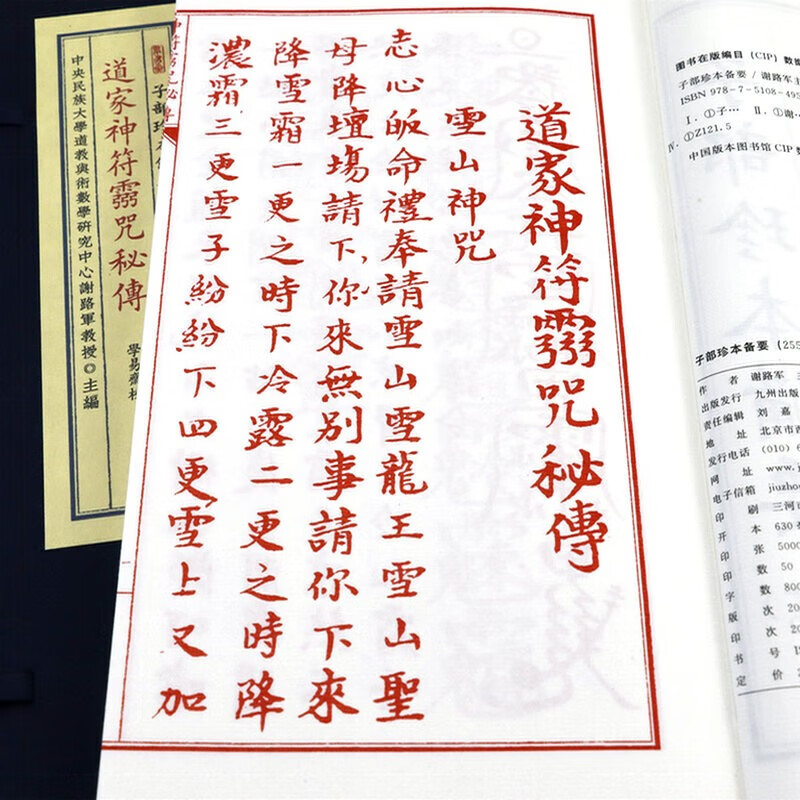 道家神符靈咒秘傳
雪山神咒
志心皈命禮奉請雪山雪龍王雪山聖
母降壇場請下你來無別事請你下來
降雪霜一更之時下冷露二更之時降
濃霜三更雪子紛紛下四更雪上又加
道家神符靈咒秘傳
中央民族大學道教與術數學研究中心謝路軍教授◎主編
图书在版编目（CIP）数据
子部珍本备要／谢路军主
ISBN 978-7-5108-495
Ⅰ．①子… Ⅱ．①谢…
Ⅳ．①Z121.5
中国版本图书馆CIP数
子部珍本备要（255
作 者 谢路军
出版发行 九州出版
责任编辑 刘 嘉
地 址 北京市西
发行电话 (010) 6
网 址 www.j
电子信箱 jiuzho
印 刷 三河
开 本 630
印 张 5000
印 数 50
字 数 800
版 次 20
印 次 20
书 号 IS
定 价